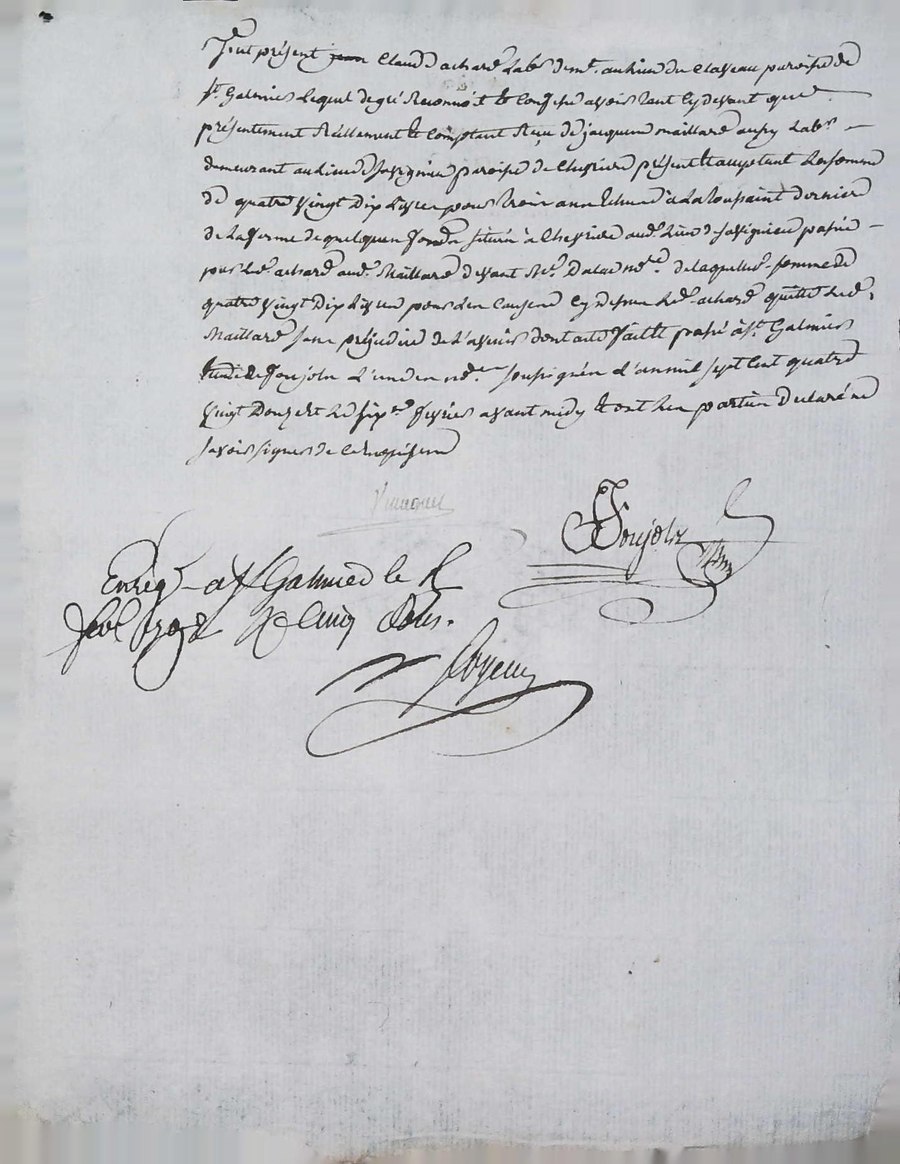 fut présent Claud achard Lab.r dem.t au lieu du Claveau paroisse de
St. Galmier Lequel de gré Reconnoit et Confesse avoir tant Cy devant que
présentement Réellement et Comptant Reçu de jacques maillard aussy Lab.r
demeurant au Lieu de Savignieu paroisse de Chevrier présent et acceptant La somme
de quatre Vingt Dix Livres pour trois années Echues à La toussaint derniere
de La ferme de quelques fonds situés à au d. Lieu de Savignieu passée
par Led. achard aud. Maillard devant Me. no.re de laquelle somme de
quatre Vingt Dix Livres pour Les Causes Cy dessus Led. achard quitte Led.
Maillard sans préjudice de L'avenir dont acte faitte passé à St. Galmier
étude de foujols L'un des no.res soussignés L'an mil sept Cent quatre
Vingt Douze et Le six.e fevrier avant midy et ont Les parties declaré ne
savoir signer de Ce requises
foujols
Enreg.é à St Galmier le
fevl 1792 R Cinq sols.